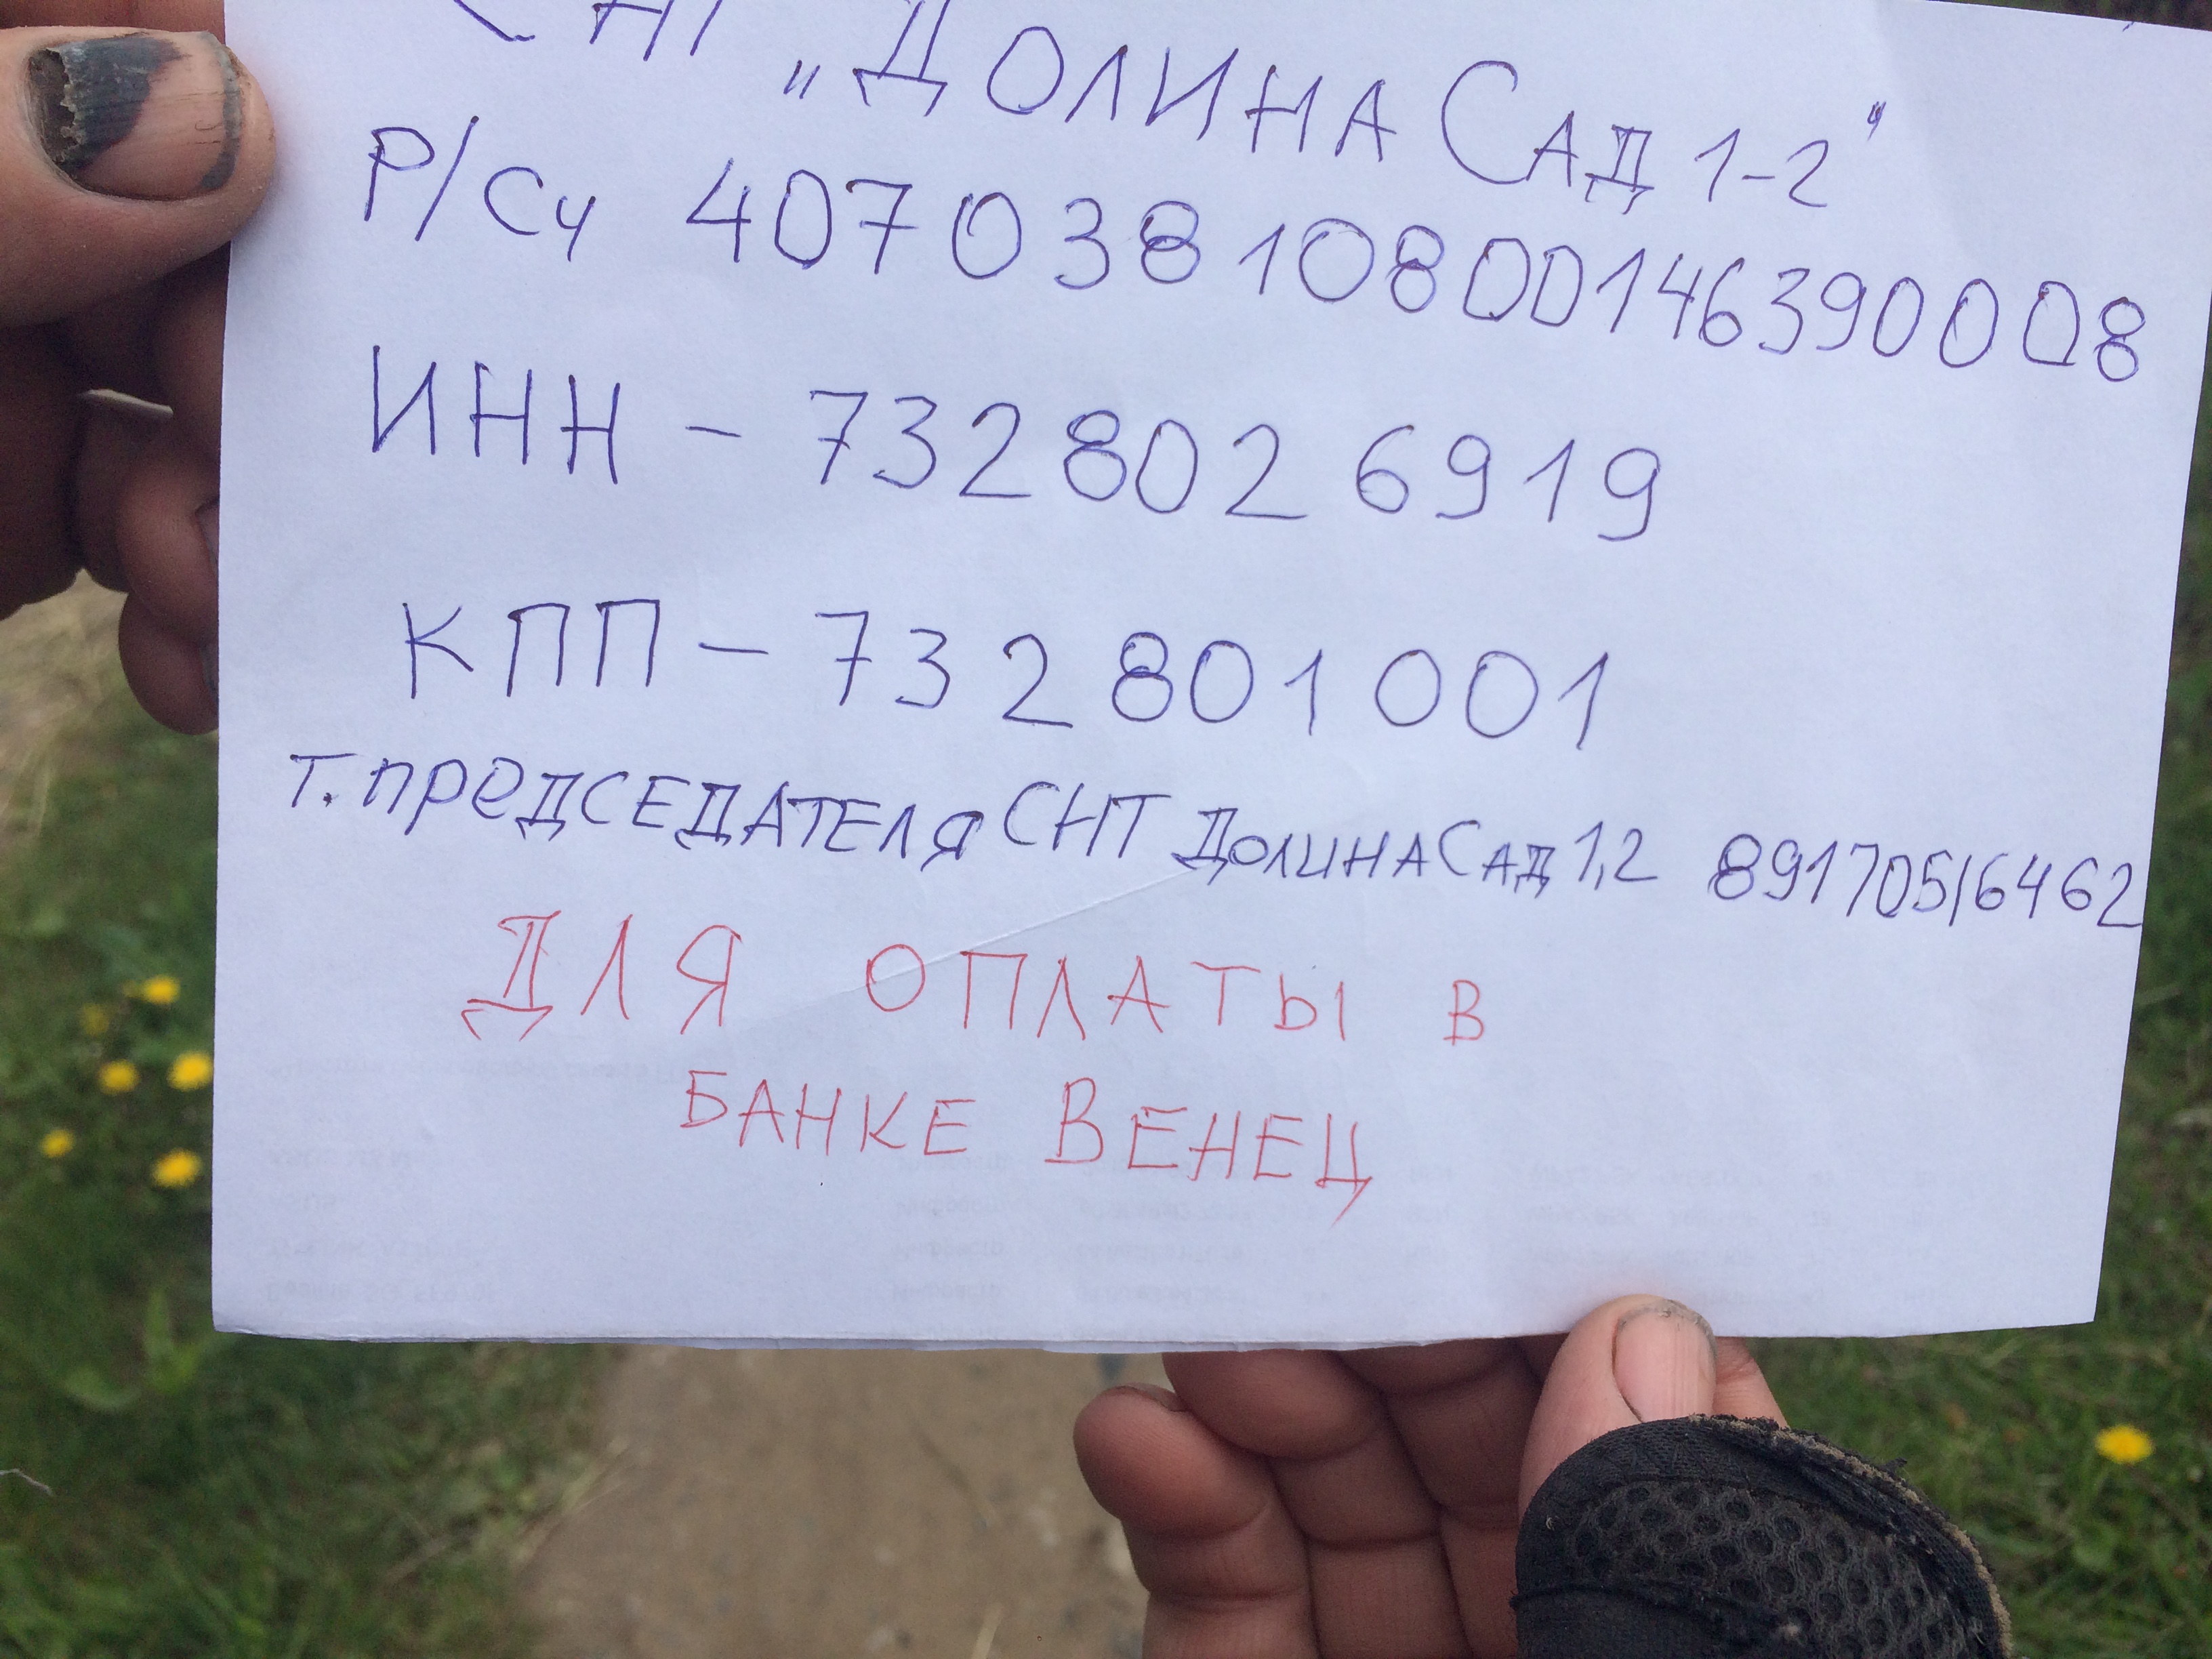 СНТ „Долина Сад 1-2"
Р/сч 40703810800146390008
ИНН - 7328026919
КПП - 732801001
т. председателя СНТ Долина Сад 1,2 89170516462
Для оплаты в
банке Венец